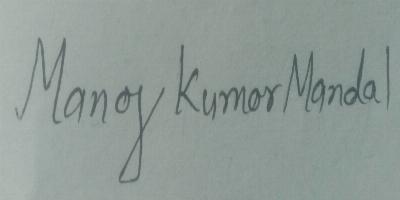 Manoj Kumar Mandal